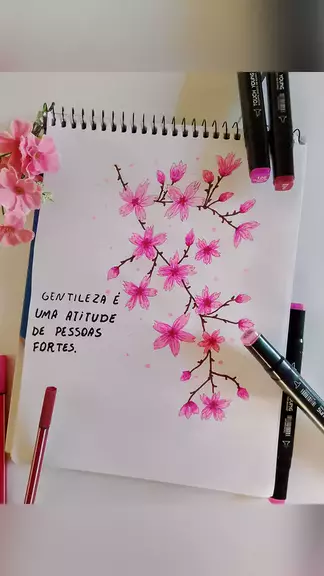 GENTILEZA É
UMA ATITUDE
DE PESSOAS
FORTES.